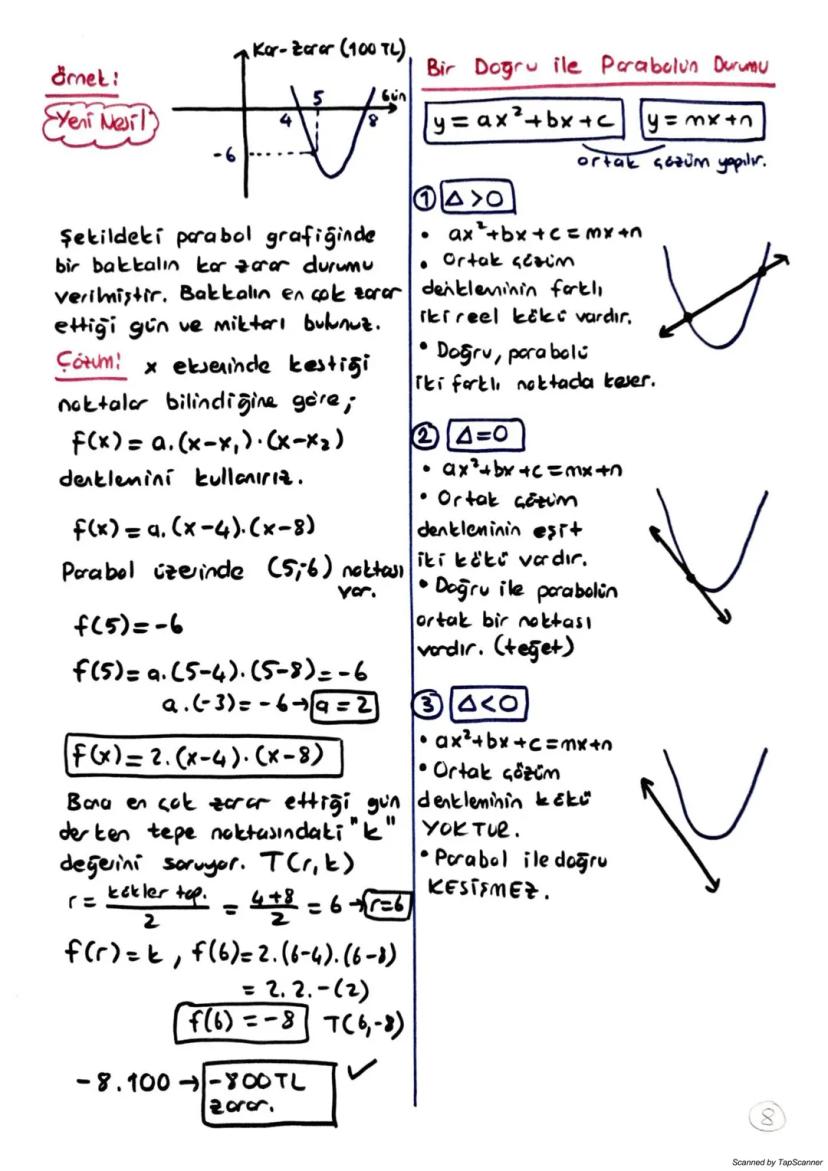 Örnek:
Yeni Nesil
Kar-Zarar (100 TL)
Gün
4
5
8
-6
Şekildeki parabol grafiğinde
bir bakkalın kar zarar durumu
verilmiştir. Bakkalın en çok zarar
ettiği gün ve miktarı bulunuz.
Çözüm: x ekseninde kestiği
noktalar bilindiğine göre;
f(x) = a.(x-x₁).(x-x₂)
denklemini kullanırız.
f(x) = a.(x-4).(x-8)
Parabol üzerinde (5,-6) noktası
var.
f(5)=-6
f(5)= a.(5-4).(5-8)=-6
a.(-3)= -6→a = 2
f(x) = 2.(x-4).(x-8)
Bana en çok zarar ettiği gün
derken tepe noktasındaki "k"
değerini soruyor. T(r,k)
r = kökler top. / 2 = 4+8 / 2 = 6 → r=6
f(r)=k, f(6)=2.(6-4).(6-8)
= 2.2.-(2)
f(6) = -8 T(6,-8)
-8.100 → -800TL
zarar.
Bir Doğru ile Parabolün Durumu
y = ax²+bx+c y = mx+n
ortak çözüm yapılır.
① Δ>0
• ax²+bx+c = mx+n
• Ortak çözüm
denkleminin farklı
iki reel kökü vardır.
• Doğru, parabolü
iki farklı noktada keser.
② Δ=0
• ax²+bx+c=mx+n
• Ortak çözüm
denkleminin eşit
iki kökü vardır.
• Doğru ile parabolün
ortak bir noktası
vardır. (teğet)
③ Δ<0
• ax²+bx+c=mx+n
• Ortak çözüm
denkleminin kökü
YOKTUR.
• Parabol ile doğru
KESİŞMEZ.
8
Scanned by TapScanner